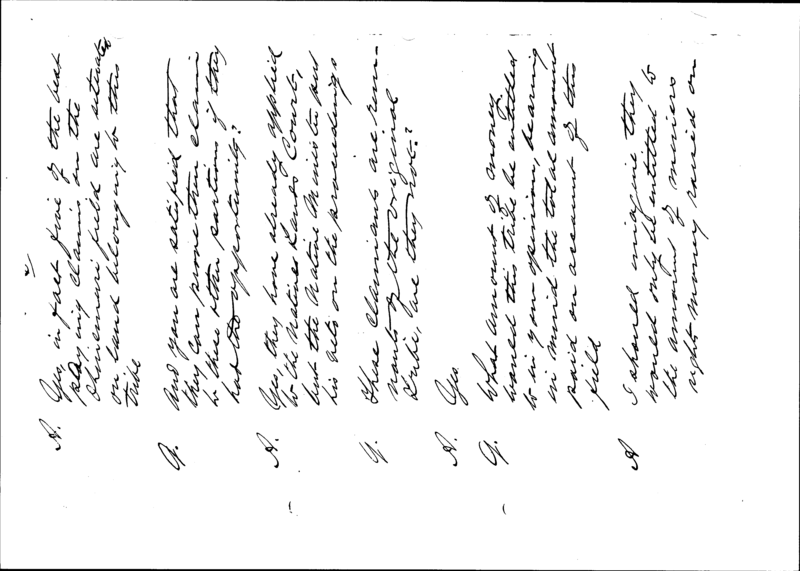 A. Yes, in fact five of the best
playing claims on the
Ohinemuri field are situated
on land belonging to this
tribe
Q. And you are satisfied that
they can prove their claim
to these other portions if they
had the opportunity?
A. Yes, they have already applied
to the Natives Lands Court,
but the Native Minister put
his veto on the proceedings
Q. These claimants are rem-
nants of the original
tribe, are they not?
A. Yes
Q. What amount of money
would this tribe be entitled
to in your opinion, bearing
in mind the total amount
paid on account of this
field
A I should imagine they
would only be entitled to
the amount of miners
rights money raised on